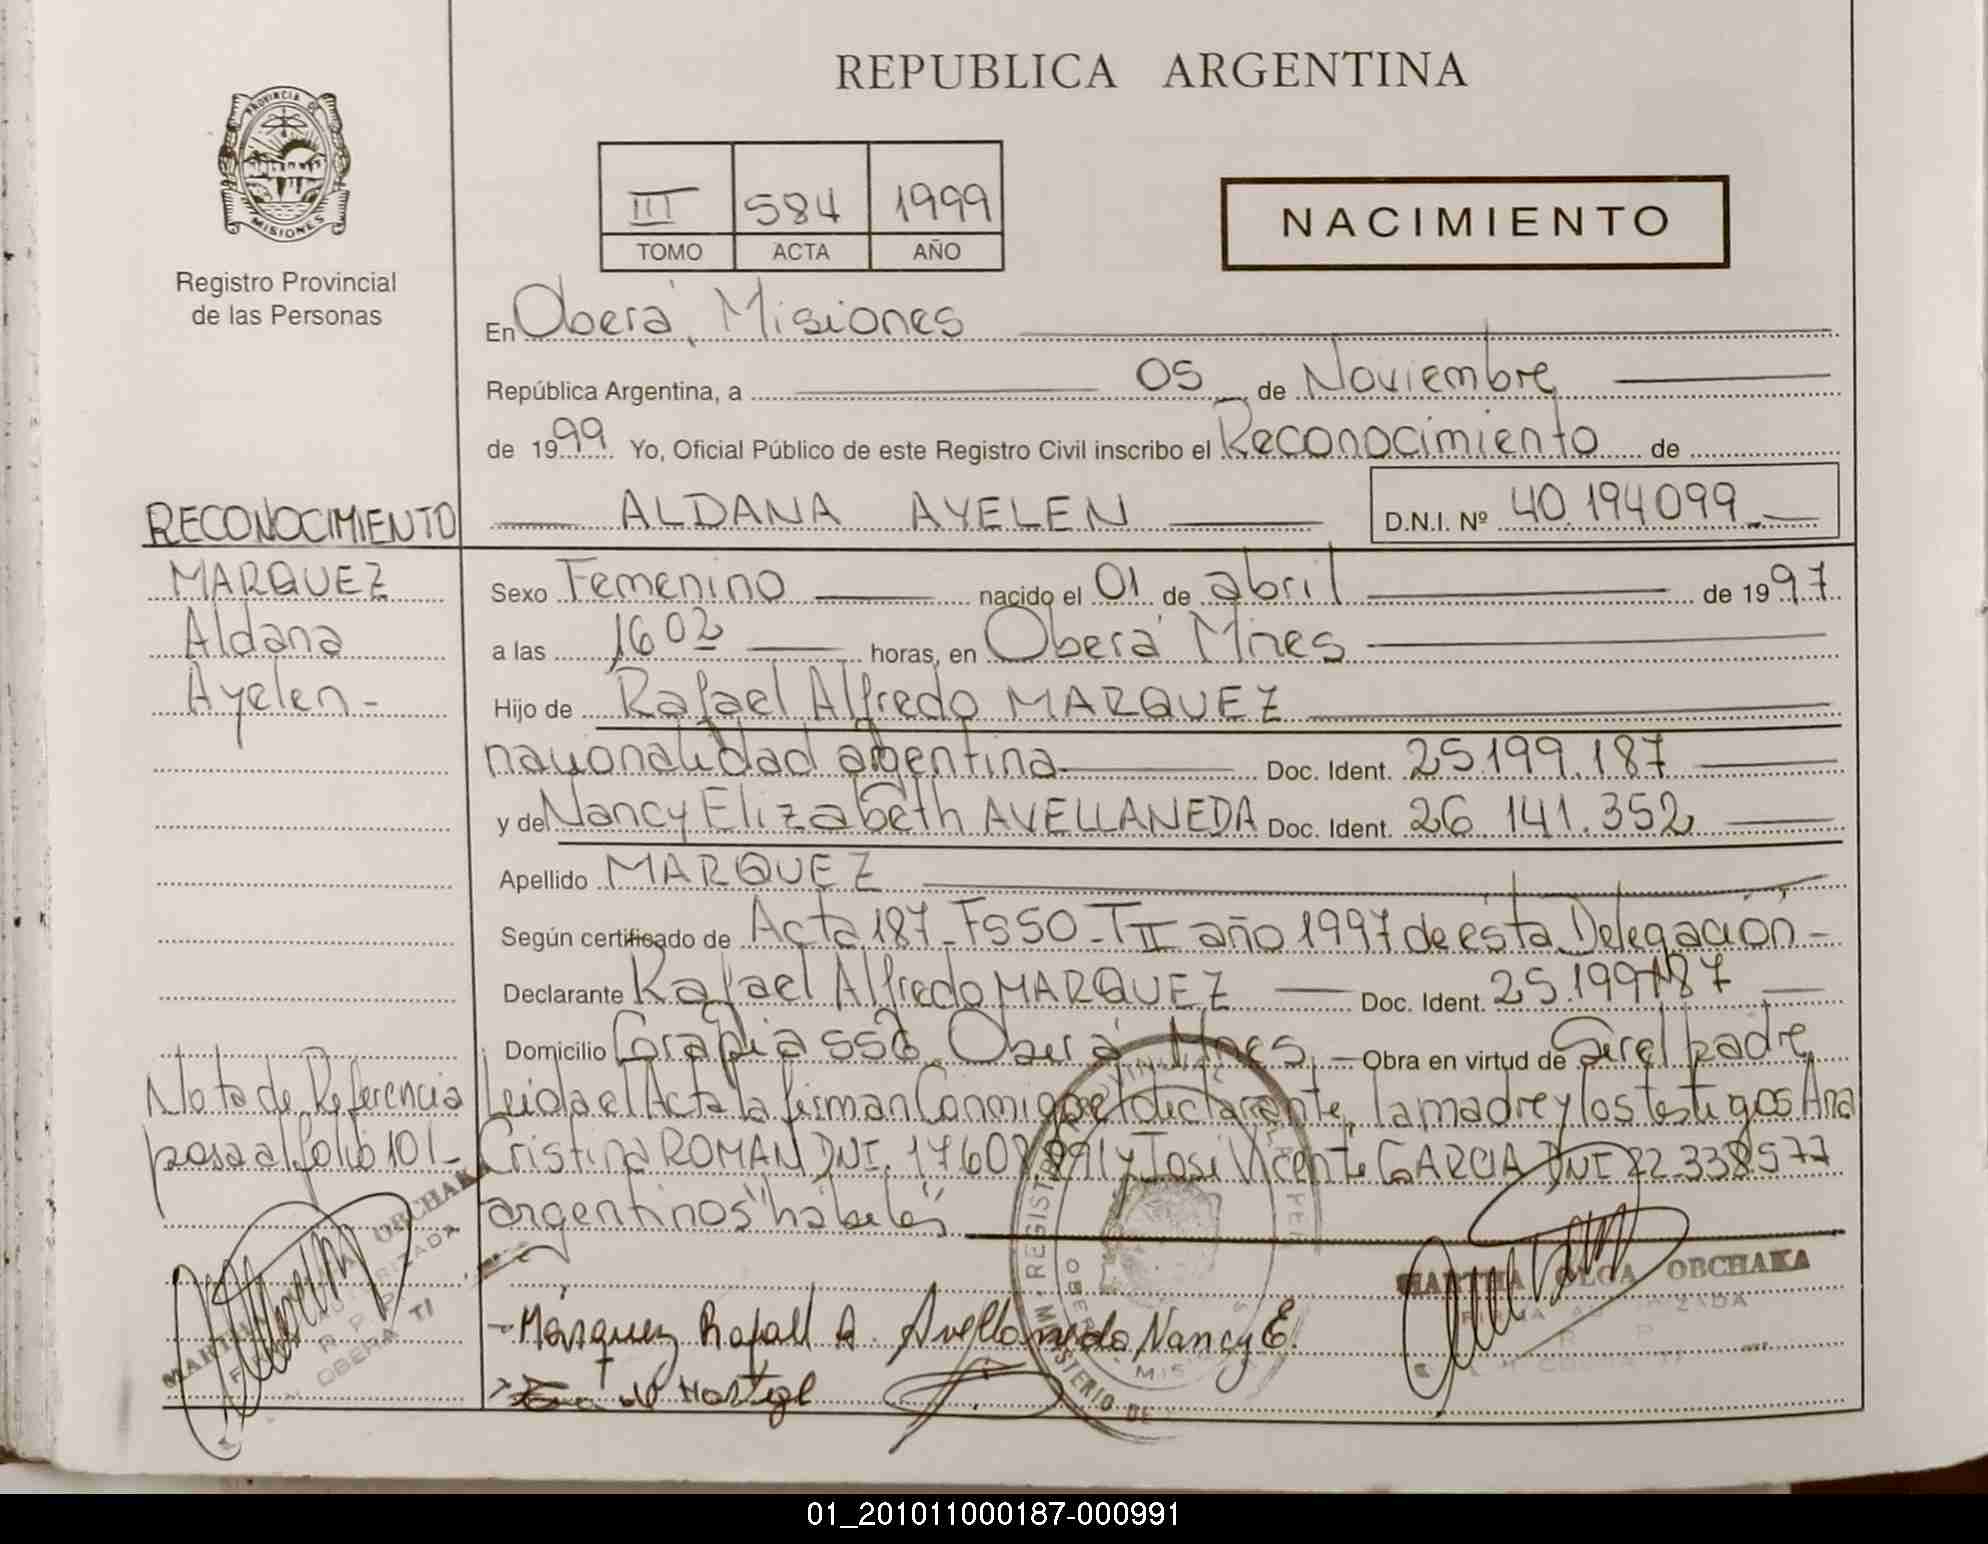 REPUBLICA ARGENTINA
PROVINCIA DE
MISIONES
Registro Provincial
de las Personas
III 584 1999
TOMO ACTA AÑO
NACIMIENTO
En Oberá, Misiones
República Argentina, a 05 de Noviembre
de 1999 Yo, Oficial Público de este Registro Civil inscribo el Reconocimiento de
ALDANA AYELEN D.N.I. Nº 40.194099
RECONOCIMIENTO
MARQUEZ
Aldana
Ayelen -
Sexo Femenino nacido el 01 de abril de 1997
a las 16 02 horas, en Oberá Mnes
Hijo de Rafael Alfredo MARQUEZ
nacionalidad argentina Doc. Ident. 25.199.187
y de Nancy Elizabeth AVELLANEDA Doc. Ident. 26 141.352
Apellido MARQUEZ
Según certificado de Acta 187_Fs50_TII año 1997 de esta Delegación -
Declarante Rafael Alfredo MARQUEZ Doc. Ident. 25.199187
Domicilio 556 Oberá Mnes Obra en virtud de Ser el padre
Leida el Acta la firman Conmigo el declarante, la madre y los testigos Ana
Cristina ROMAN DNI. y José Vicente GARCIA DNI 22.338.577
argentinos "habiles"
Nota de Referencia
pasa al folio 101-
MARTHA OLGA OBCHAKA
FIRMA AUTORIZADA
- Marquez Rafael A. Avellaneda Nancy E.
MINISTERIO DE
01_201011000187-000991